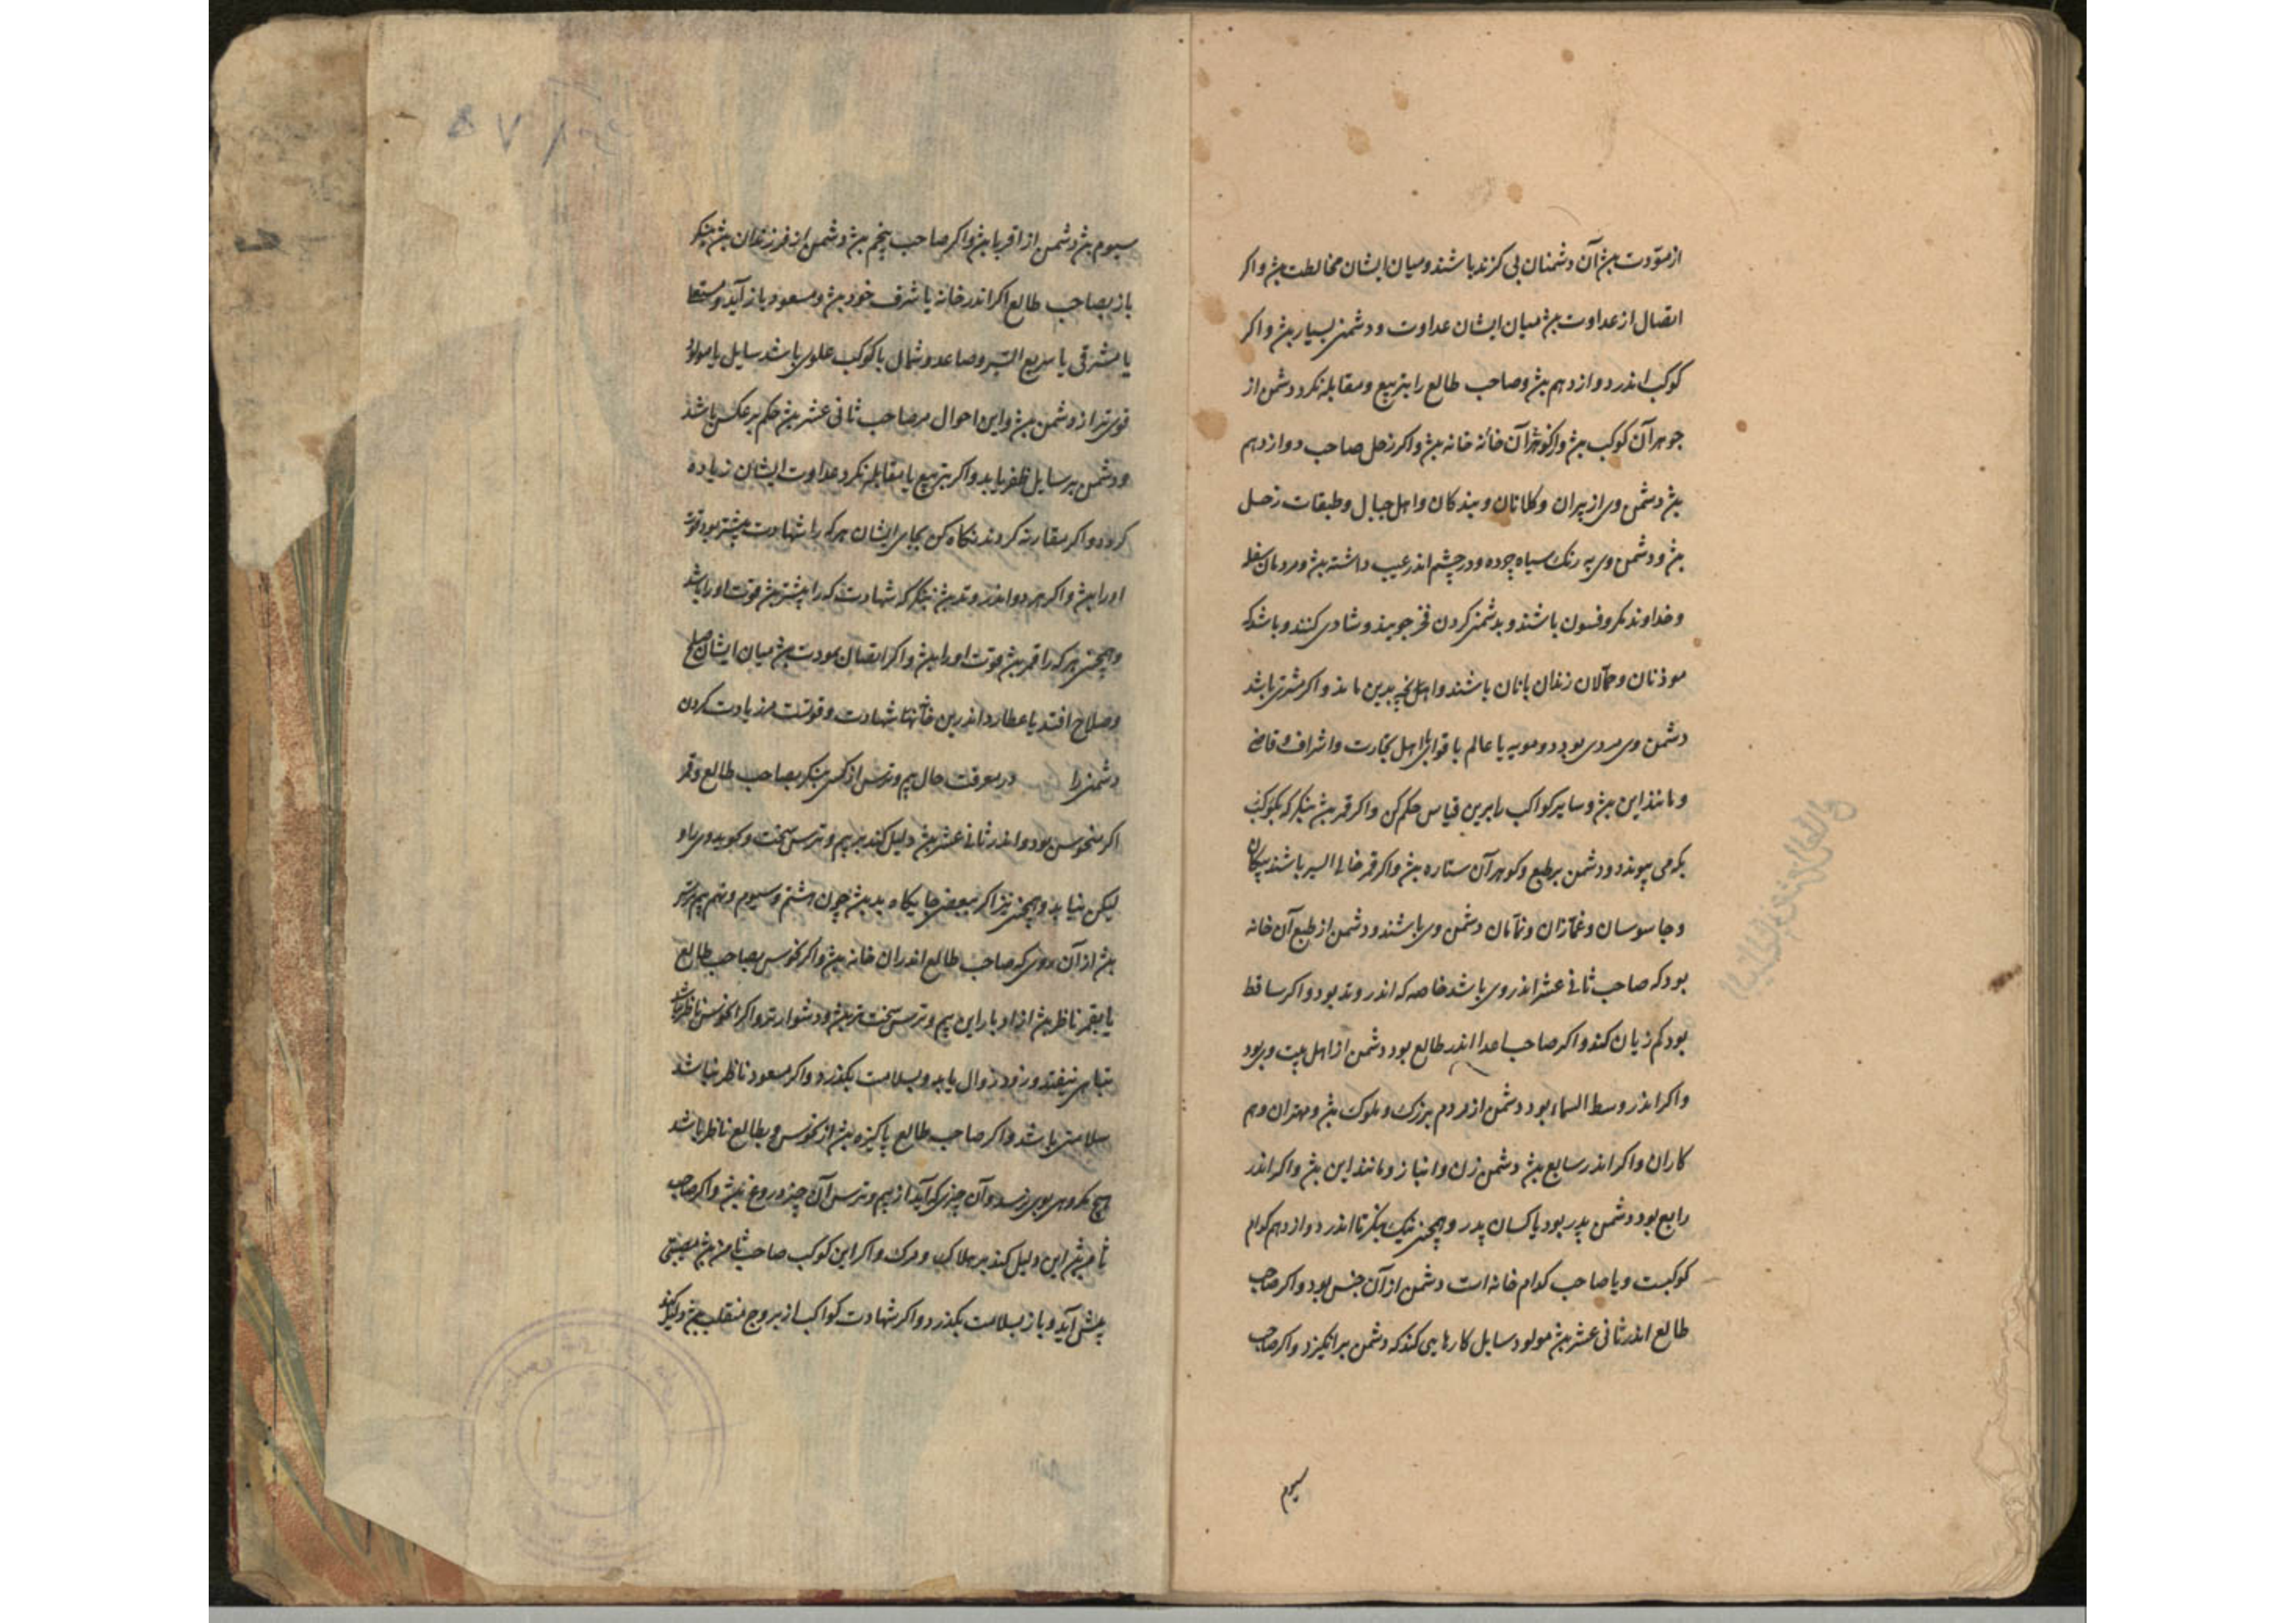 از مودت بود آن دشمنان بی گزند باشند و میان ایشان مخالطت بود و اکر
اتصال از عداوت بود میان ایشان عداوت و دشمنی بسیار بود و اکر
کوکب اندر دوازدهم بود و صاحب طالع را بتربیع و مقابله نکرد دشمن از
جوهر آن کوکب بود و آن خانه بود و اکر زحل صاحب دوازدهم
بود دشمن وی از پیران و کلانان و بندکان و اهل جبال و طبقات زحل
بود و دشمن وی به رنک سیاه چرده و در چشم اندر عیب داشته بود و مردمان سفله
و خداوند مکر و فسون باشند و بدشمنی کردن فخر جویند و شادی کنند و باشد که
موذنان و حمالان زندان بانان باشند و بدین ماند و اکر مشتری باشد
دشمن وی مردی بود دو مویه یا عالم یا اهل تجارت و اشراف و قاضی
و مانند این بود و سایر کواکب را برین قیاس حکم کن و اکر قمر بود بنکر که بکوکب
که می پیوندد و دشمن بر طبع و کوهر آن ستاره بود و اکر قمر خالی السیر باشد پیکان
و جاسوسان و غمازان و نمامان دشمن وی باشند و دشمن از طبع آن خانه
بود که صاحب ثانی عشر اندر وی باشد خاصه که اندر وتد بود و اکر ساقط
بود کم زیان کند و اکر صاحب اعدا اندر طالع بود دشمن از اهل بیت وی بود
و اکر اندر وسط السماء بود دشمن از مردم بزرک و ملوک بود و مهتران و هم
کاران و اکر اندر سابع بود دشمن زن و انباز و مانند این بود و اکر اندر
رابع بود دشمن پدر بود یا کسان پدر و همچنین نیک بنکر تا اندر دوازدهم کدام
کوکبست و یا صاحب کدام خانه است دشمن از آن جنس بود و اکر صاحب
طالع اندر ثانی عشر بود مولود سایل کارهایی کند که دشمن برانکیزد و اکر صاحب
سیوم
سیوم بود دشمن از اقربا بود و اکر صاحب پنجم بود دشمن از فرزندان بود بنکر
باز بصاحب طالع اکر اندر خانه یا شرف خود بود و مسعود باز آید و
یا مشرقی یا سریع السیر و صاعد و شمال یا کوکب علوی باشد سایل یا مولود
قوی تر از دشمن بود و این احوال مر صاحب ثانی عشر بود حکم بر عکس باشد
و دشمن بر سایل ظفر یابد و اکر بتربیع یا مقابله نکرد عداوت ایشان زیاده
کردد و اکر مقارنه کردند نکاه کن بجای ایشان هر که را شهادت بیشتر بود قوت
او را بود و اکر هر دو اندر وتد بود بنکر که شهادت که را بیشتر بود قوت او را باشد
و همچنین هر که را قمر بود قوت او را بود و اکر اتصال بمودت بود میان ایشان صلح
و صلاح افتد یا عطارد اندرین خانها شهادت و قوتست مر زیادت کردن
دشمنی را در معرفت حال بیم و ترس از کسی بنکر بصاحب طالع و قمر
اکر منحوس بود و اندر ثانی عشر بود دلیل کند بر بیم و ترس سخت و
لیکن نیابد و همچنین نیز اکر ببعضی جایکاه بد بود چون هشتم و سیوم و نهم بیم و ترس
بود از آن روی که صاحب طالع اندران خانه بود و اکر نحوس بصاحب طالع
یا بقمر ناظر بود از ادبار این بیم و ترس سخت تر بود و دشوارتر و اکر نحوس ناظر نباشد
تباهی نیفتد و زود زوال یابد و بسلامت بکذرد و اکر مسعود ناظر نباشد
سلامتی باشد و اکر صاحب طالع پاکیزه بود از نحوس و بطالع ناظر باشد
هیچ مکروهی بوی نرسد و آن چیزی که آید از بیم و ترس آن چیز دروغ بود و اکر صاحب
ثامن بود این دلیل کند بر هلاک و مرک و اکر این کوکب صاحب ثامن بود مصیبتی
پیش آید و باز بسلامت بکذرد و اکر شهادت کواکب از بروج منقلب بود دلیل کند